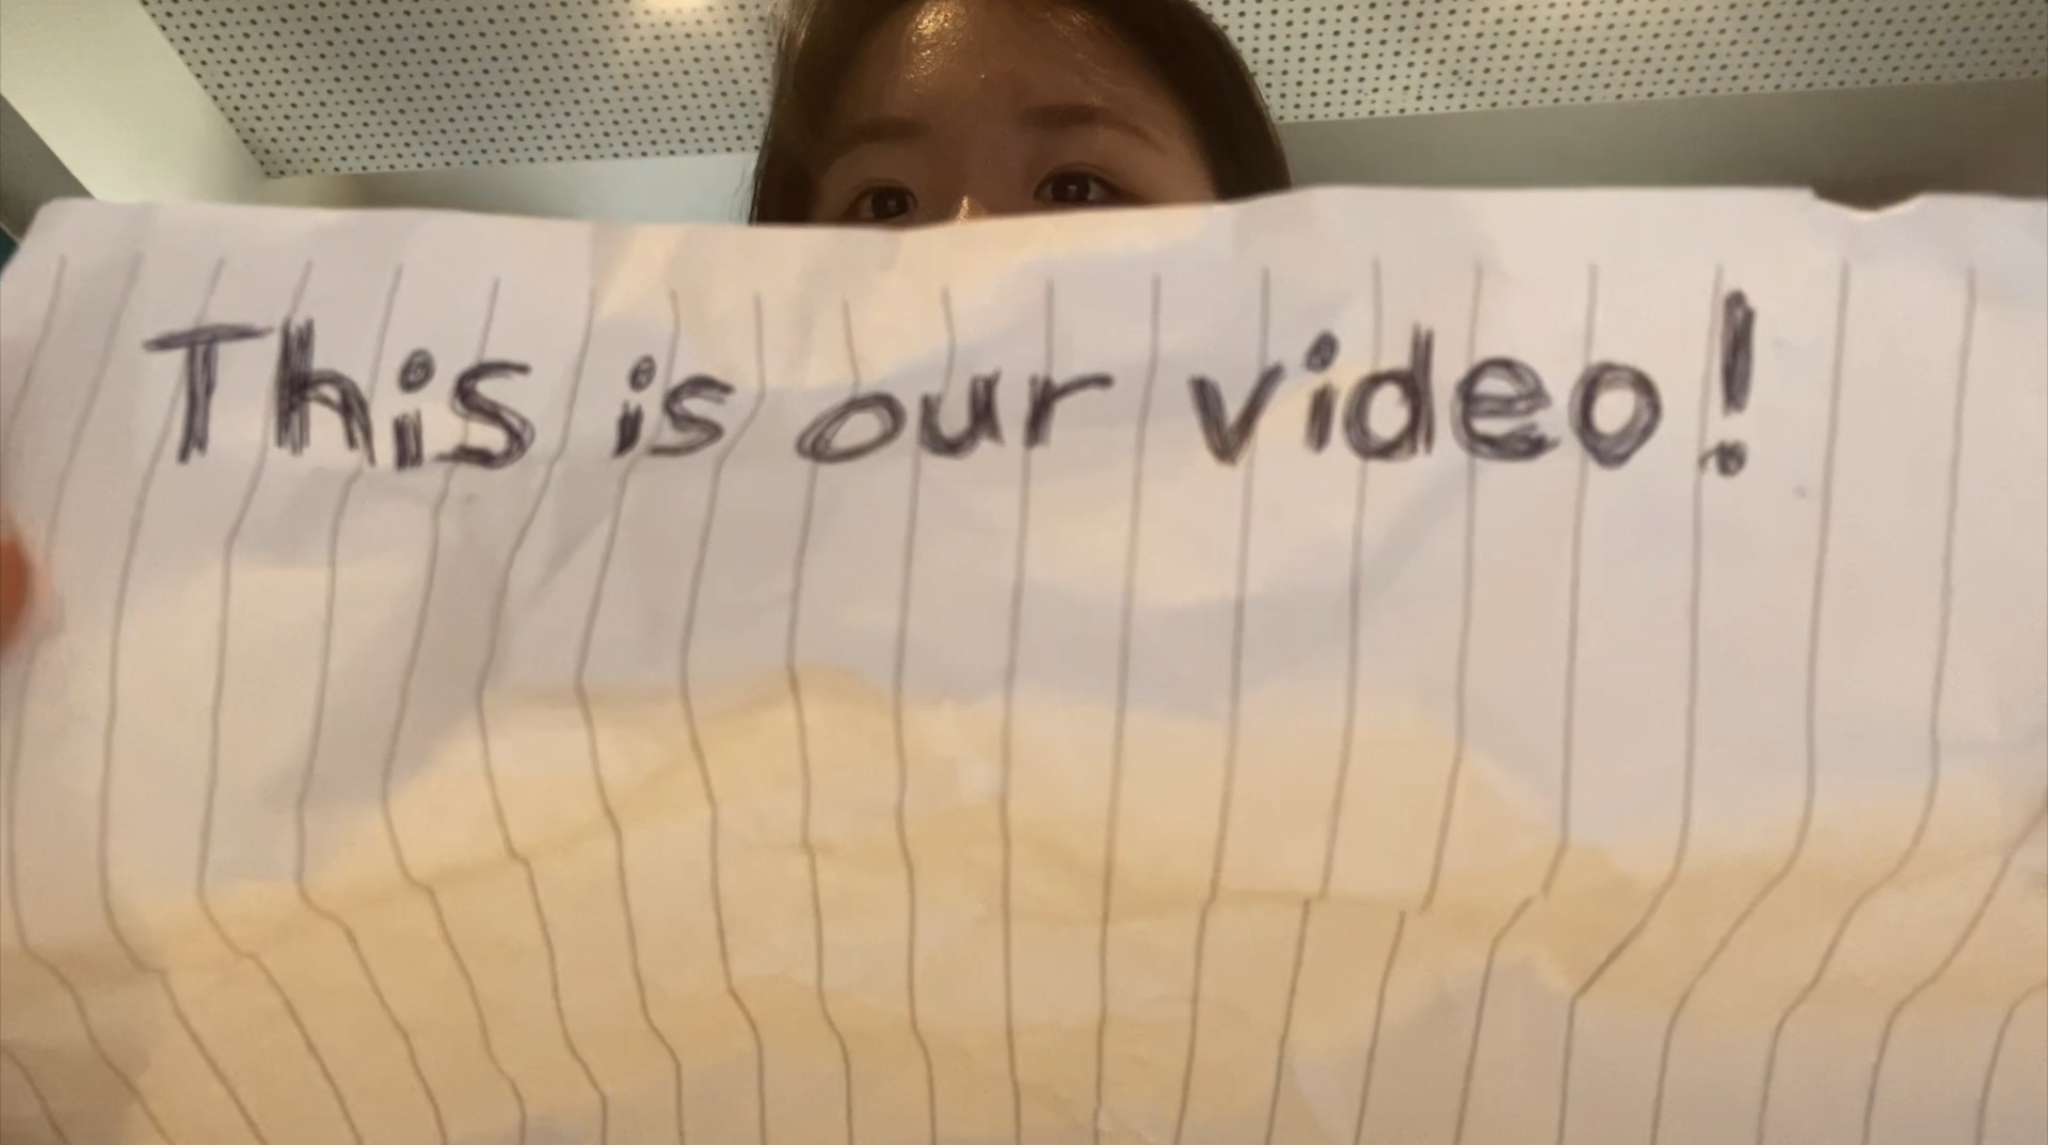 This is our video!